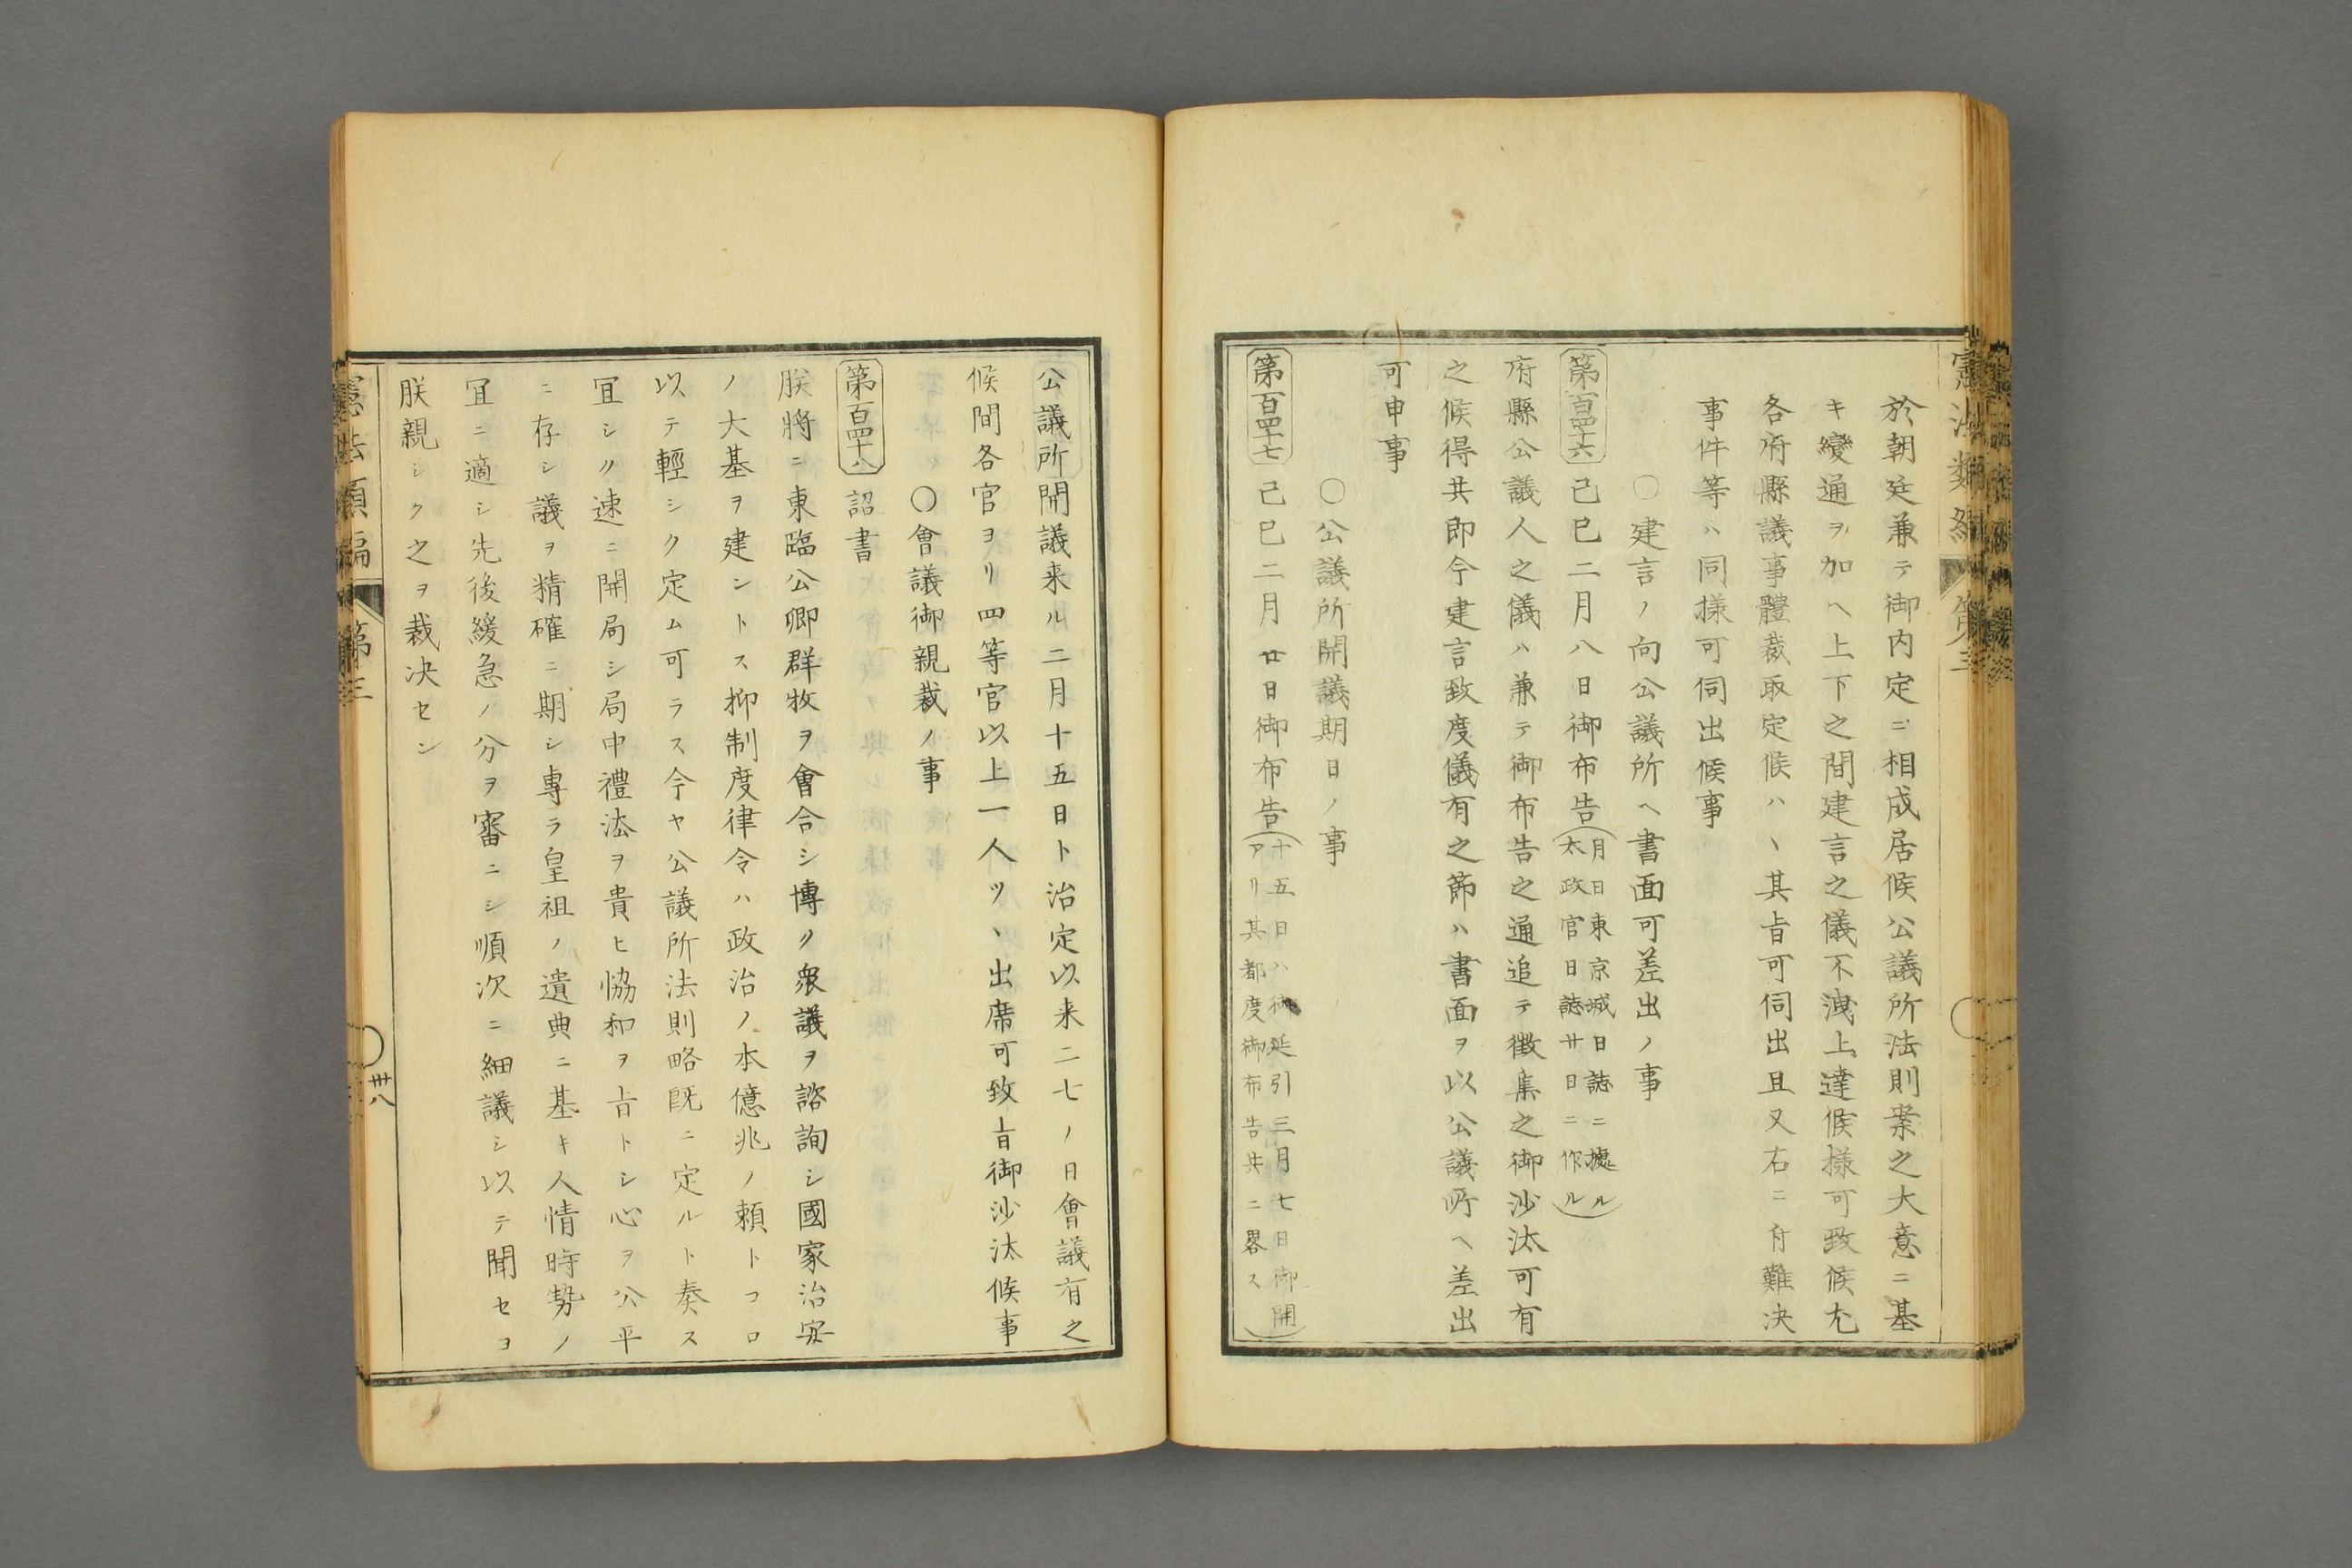 憲法類編 第三
於朝廷兼テ御内定ニ相成居候公議所法則案之大意ニ基
キ變通ヲ加ヘ上下之間建言之儀不洩上達候様可致候尤
各府縣議事體裁取定候ハヽ其旨可伺出且又右ニ付難決
事件等ハ同様可伺出候事
○建言ノ向公議所ヘ書面可差出ノ事
第百四十六 己巳二月八日御布告(月日東京城日誌ニ據ル
太政官日誌廿日ニ作ル)
府縣公議人之儀ハ兼テ御布告之通追テ徴集之御沙汰可有
之候得共即今建言致度儀有之節ハ書面ヲ以公議所ヘ差出
可申事
○公議所開議期日ノ事
第百四十七 己巳二月廿日御布告(十五日ハ御延引三月七日御開
アリ其都度御布告共ニ畧ス)
公議所開議来ル二月十五日ト治定以来二七ノ日會議有之
候間各官ヨリ四等官以上一人ツヽ出席可致旨御沙汰候事
○會議御親裁ノ事
第百四十八 詔書
朕將ニ東臨公卿群牧ヲ會合シ博ク衆議ヲ諮詢シ國家治安
ノ大基ヲ建ントス抑制度律令ハ政治ノ本億兆ノ頼トコロ
以テ輕シク定ム可ラス今ヤ公議所法則略既ニ定ルト奏ス
宜シク速ニ開局シ局中禮法ヲ貴ヒ協和ヲ旨トシ心ヲ公平
ニ存シ議ヲ精確ニ期シ專ラ皇祖ノ遺典ニ基キ人情時勢ノ
宜ニ適シ先後緩急ノ分ヲ審ニシ順次ニ細議シ以テ聞セヨ
朕親シク之ヲ裁決セン
憲法類編 第三
卅八